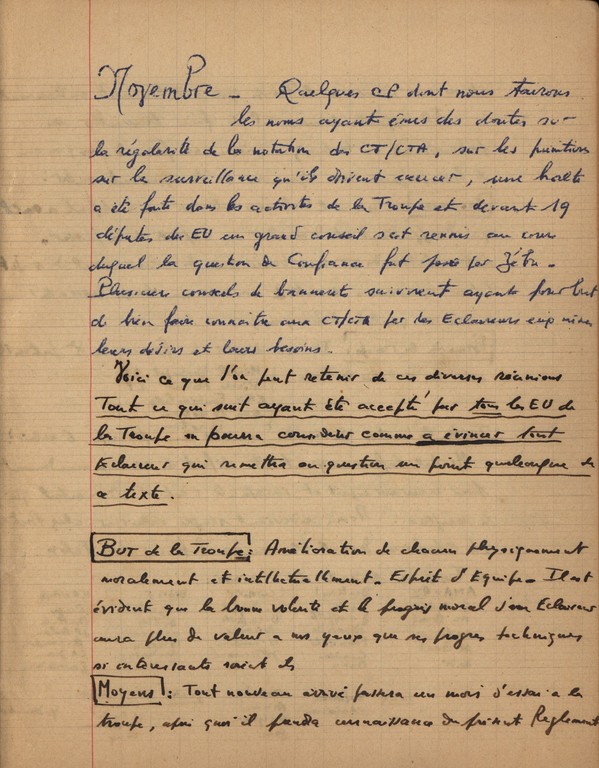 Novembre - Quelques CP dont nous tairons
les noms ayant émis des doutes sur
la régularité de la notation des CT/CTA, sur les punitions
sur la surveillance qu'ils doivent exercer, une halte
a été faite dans les activités de la Troupe et devant 19
députés des EU un grand conseil s'est réuni au cours
duquel la question de Confiance fut posée par Zébu -
Plusieurs conseils de bannerets suivirent ayant pour but
de bien faire connaître aux CT/CTA par les Eclaireurs eux mêmes
leurs désirs et leurs besoins.
Voici ce que l'on peut retenir de ces diverses réunions
Tout ce qui suit ayant été accepté par tous les EU de
la Troupe on pourra considérer comme à évincer tout
Eclaireur qui remettra en question un point quelconque de
ce texte.
But de la Troupe : Amélioration de chacun physiquement
moralement et intellectuellement - Esprit d'Equipe - Il est
évident que la bonne volonté et le progrès moral d'un Eclaireur
aura plus de valeur à nos yeux que ses progrès techniques
si intéressants soient ils
Moyens : Tout nouveau arrivé passera un mois d'essai à la
troupe, après quoi il prendra connaissance du présent Règlement